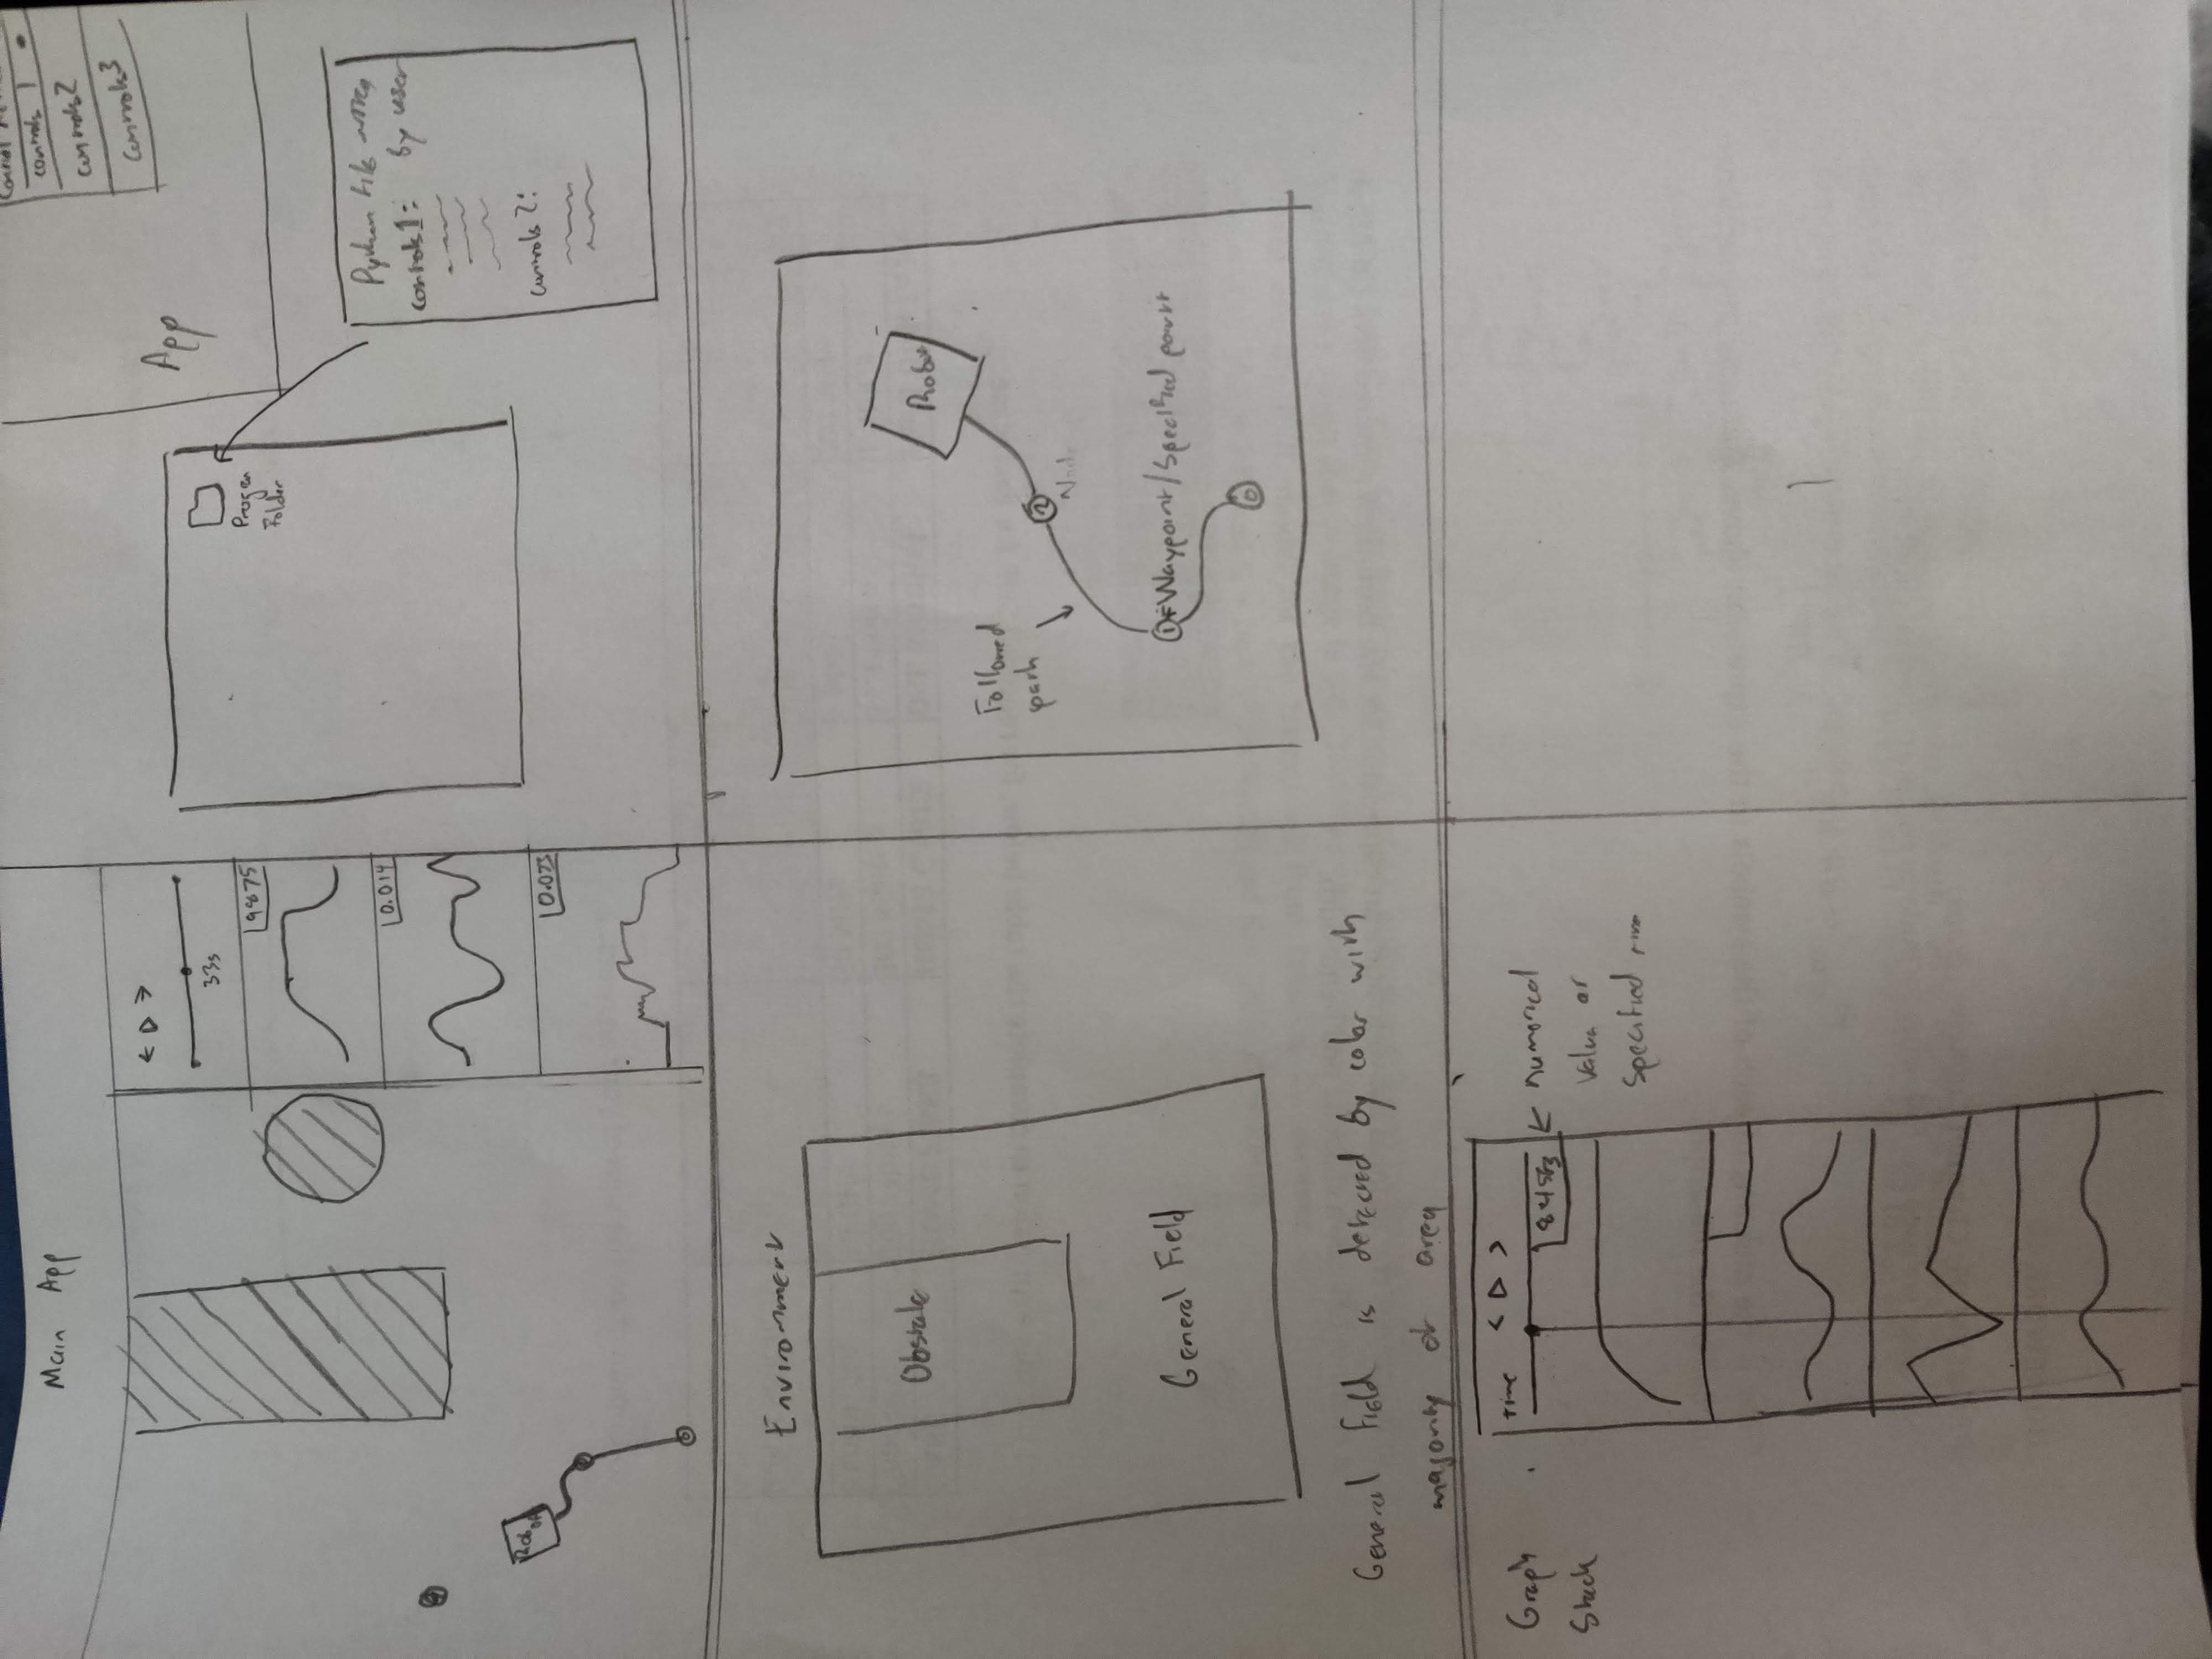 Main App
33s
9875
0.014
Robot
controls 1
controls2
controls3
App
Folder
Python file
by user
controls1:
controls 2:
Environment
Obstale
General Field
General Field is detected by color with
majority of area
Robot
Followed
path
2
Node
1
Waypoint/Specified point
0
Graph
Stack
time
numerical
value at
specified time